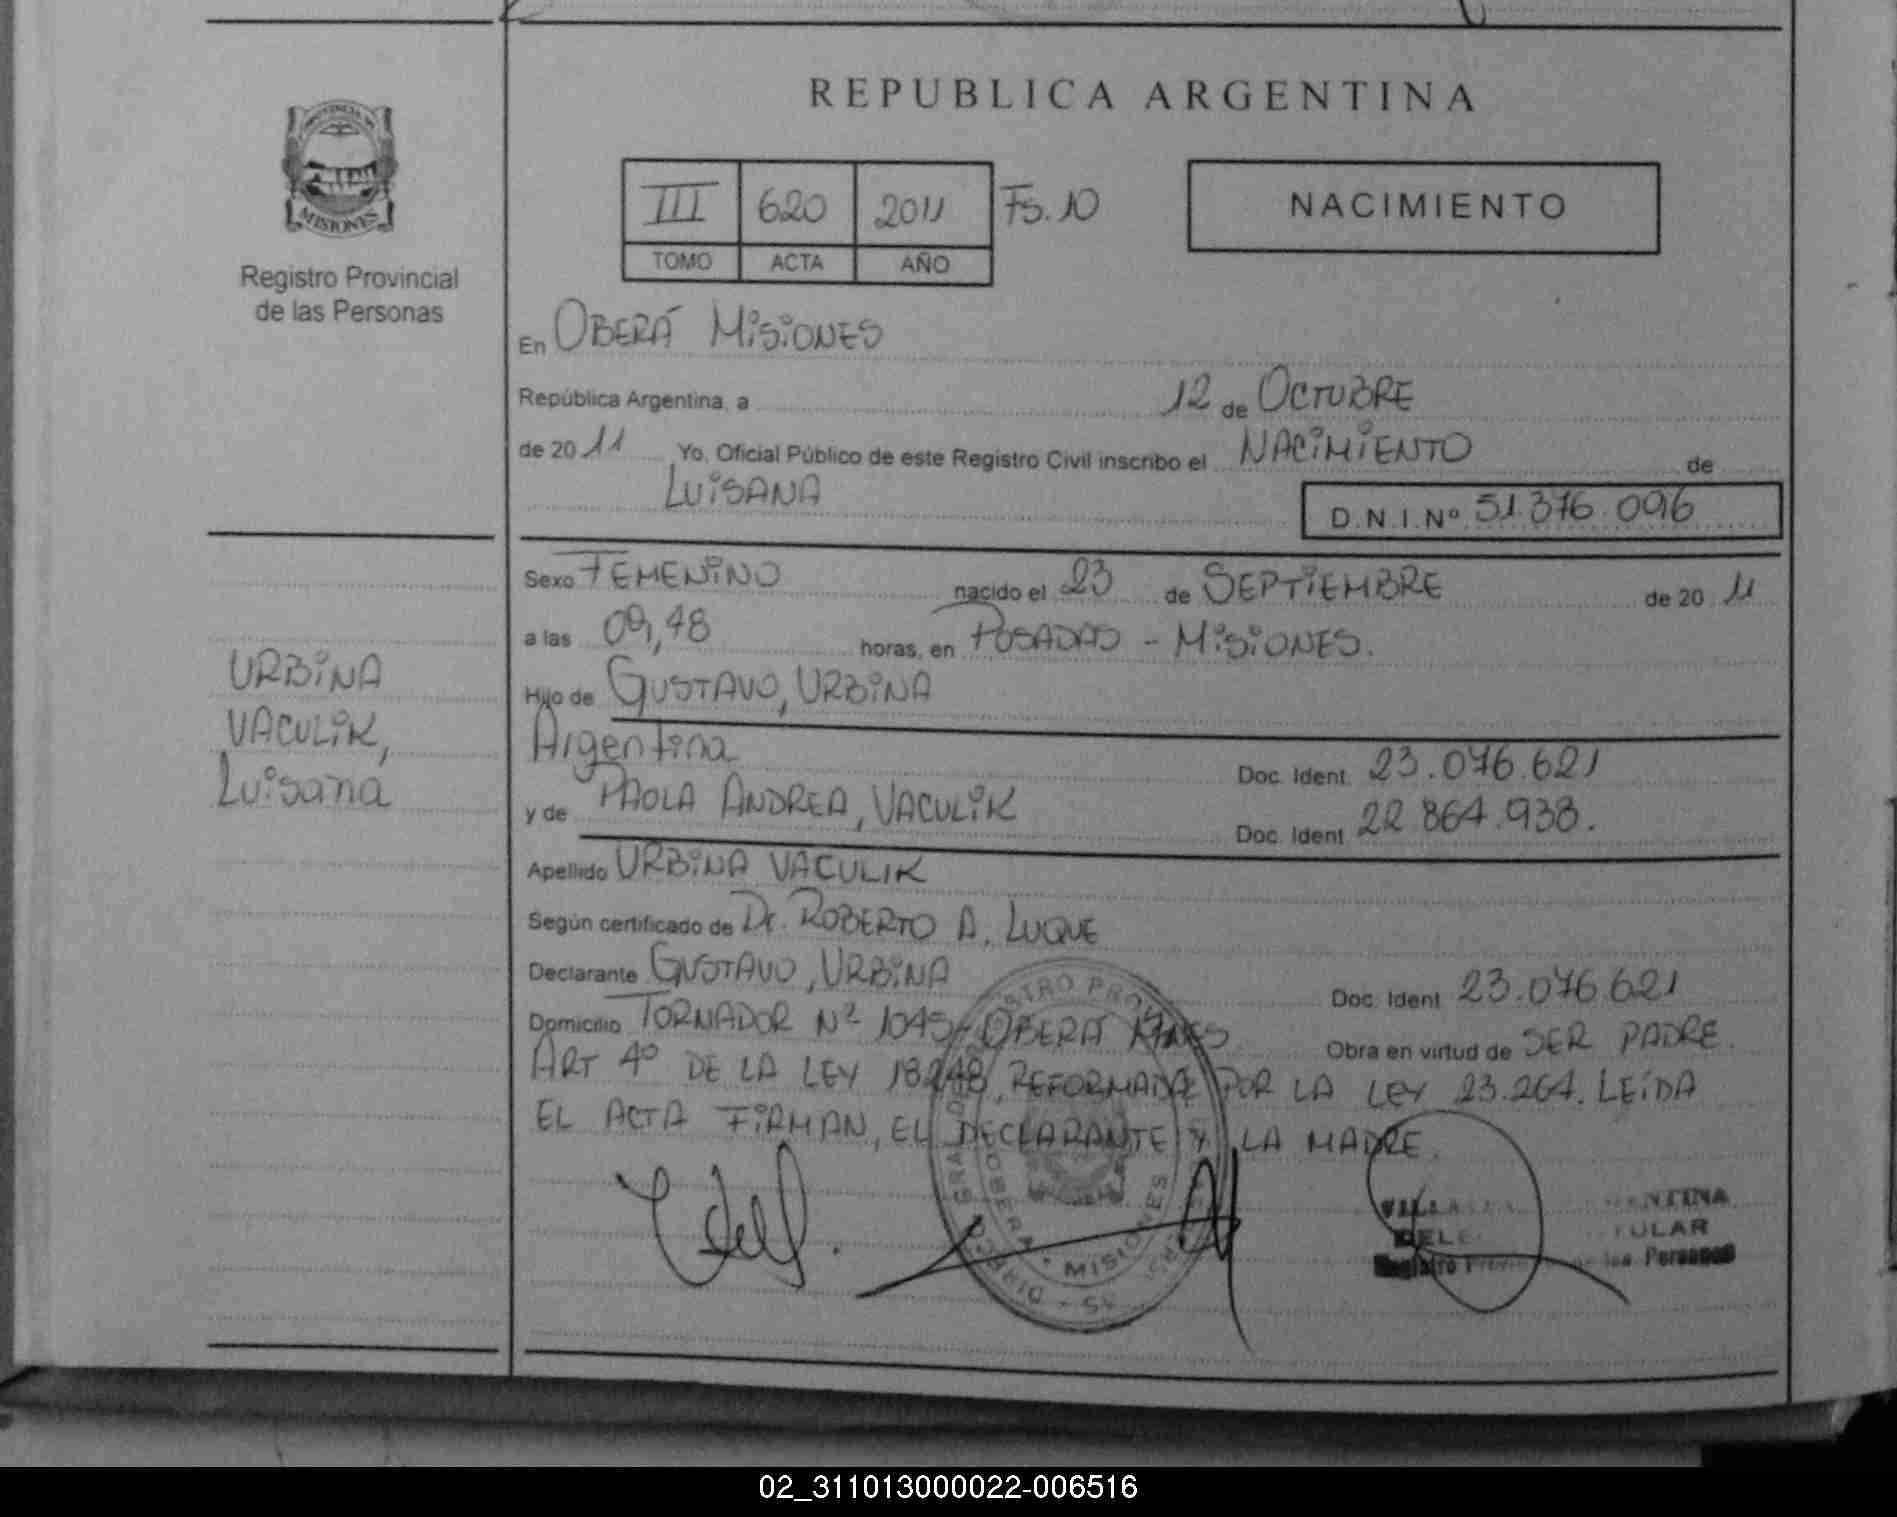 REPUBLICA ARGENTINA
PROVINCIA DE
MISIONES
Registro Provincial
de las Personas
III 620 2011 Fs. 10
TOMO ACTA AÑO
NACIMIENTO
En OBERÁ MISIONES
República Argentina, a 12 de OCTUBRE
de 20 11 Yo, Oficial Público de este Registro Civil inscribo el NACIMIENTO de
LUISANA
D.N.I. Nº 51.376.096
Sexo FEMENINO nacido el 23 de SEPTIEMBRE de 20 11
a las 09,48 horas, en POSADAS - MISIONES.
Hijo de GUSTAVO, URBINA
Argentina Doc. Ident. 23.076.621
y de PAOLA ANDREA, VACULIK Doc. Ident 22 864.938.
URBINA
VACULIK,
Luisana
Apellido URBINA VACULIK
Según certificado de Dr. ROBERTO A. LUQUE
Declarante GUSTAVO, URBINA Doc. Ident 23.076 621
Domicilio TORNADOR Nº 1045 - OBERÁ MNES Obra en virtud de SER PADRE.
ART 4º DE LA LEY 18248, REFORMADA POR LA LEY 23.264. LEÍDA
EL ACTA FIRMAN, EL DECLARANTE Y LA MADRE.
OBERA • MISIONES
TULAR
Registro de las Personas
02_311013000022-006516